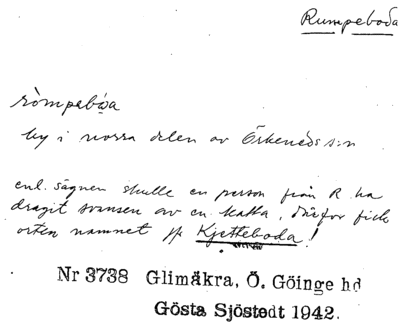 Rumpeboda
ròmpebóa
by i norra delen av Örkeneds s:n
enl. sägnen skulle en person från R ha
dragit svansen av en katta, därför fick
orten namnet på Kjetteboda!
Nr 3738 Glimåkra, Ö. Göinge hd
Gösta Sjöstedt 1942.